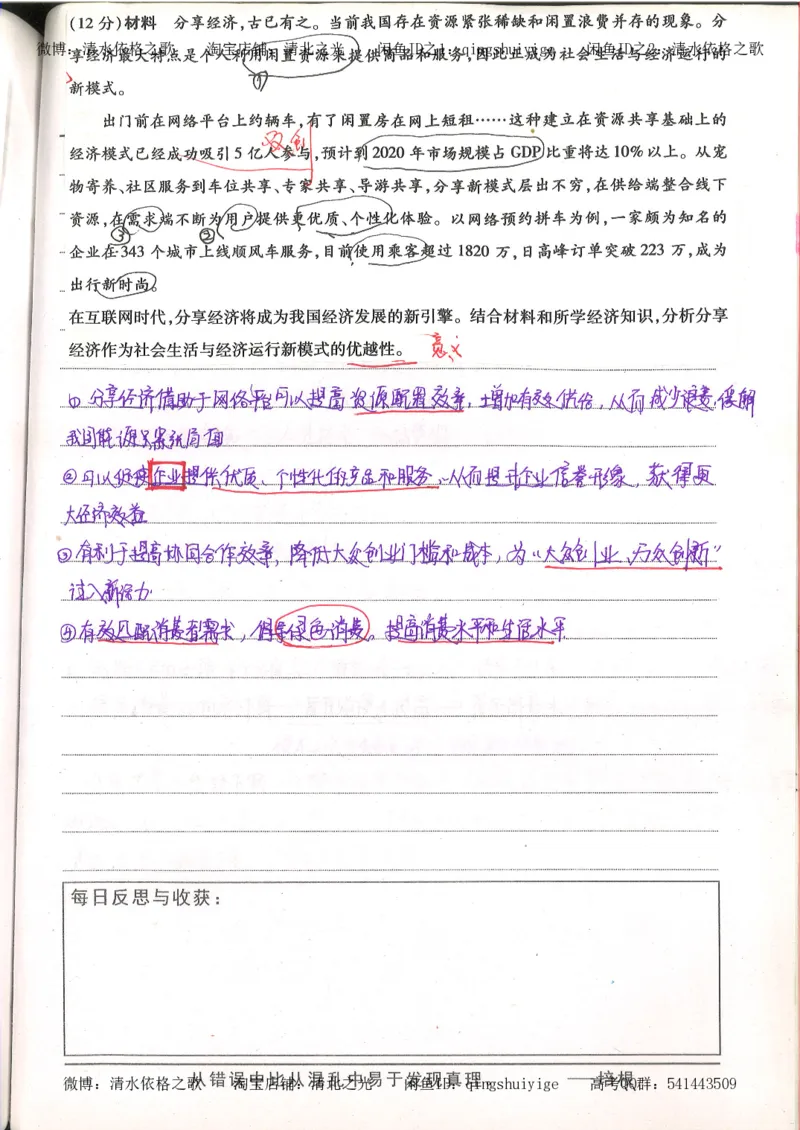 (12分)材料 分享经济,古已有之。当前我国存在资源紧张稀缺和闲置浪费并存的现象。分
微博：清水依格之歌 淘宝店铺：清北之光 闲鱼ID之1：qingshuiyige 闲鱼ID之2：清水依格之歌
享经济最大特点是个人利用闲置资源来提供商品和服务,因此正成为社会生活与经济运行的
①
新模式。
出门前在网络平台上约辆车,有了闲置房在网上短租……这种建立在资源共享基础上的
双创
经济模式已经成功吸引5亿人参与,预计到2020年市场规模占GDP比重将达10%以上。从宠
物寄养、社区服务到车位共享、专家共享、导游共享,分享新模式层出不穷,在供给端整合线下
资源,在需求端不断为用户提供更优质、个性化体验。以网络预约拼车为例,一家颇为知名的
③ ②
企业在343个城市上线顺风车服务,目前使用乘客超过1820万,日高峰订单突破223万,成为
出行新时尚。
在互联网时代,分享经济将成为我国经济发展的新引擎。结合材料和所学经济知识,分析分享
经济作为社会生活与经济运行新模式的优越性。 意义
① 分享经济借助于网络平台可以提高资源配置效率，增加有效供给，从而减少浪费，缓解
我国能源紧张局面
② 可以促使企业提供优质、个性化的产品和服务、从而提升企业信誉形象，获得更
大经济效益
③ 有利于提高协同合作效率，降低大众创业门槛和成本，为“大众创业、万众创新”
注入新活力
④ 有效匹配消费者需求，倡导绿色消费。提高消费水平和生活水平
每日反思与收获：
从错误中比从混乱中易于发现真理。 ——培根
微博：清水依格之歌 淘宝店铺：清北之光 闲鱼ID：qingshuiyige 高考QQ群：541443509